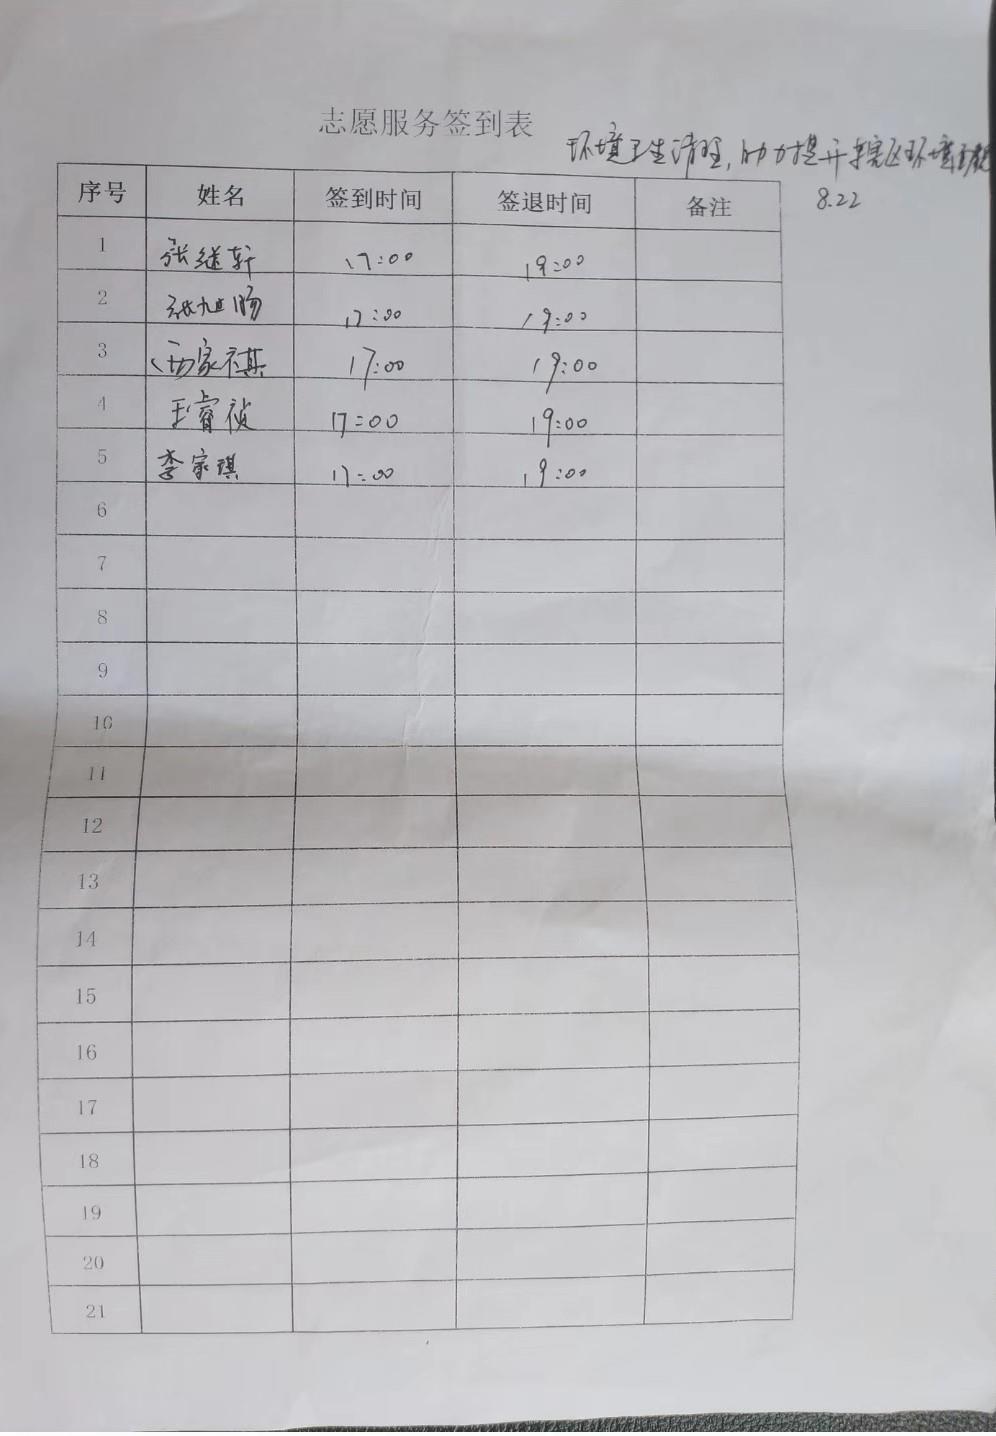 志愿服务签到表
环境卫生清理,助力提升辖区环境
8.22
序号 姓名 签到时间 签退时间 备注
1 张继轩 17:00 19:00
2 张旭肠 17:00 19:00
3 家祺 17:00 19:00
4 王睿祯 17:00 19:00
5 李家琪 17:00 19:00
6
7
8
9
10
11
12
13
14
15
16
17
18
19
20
21